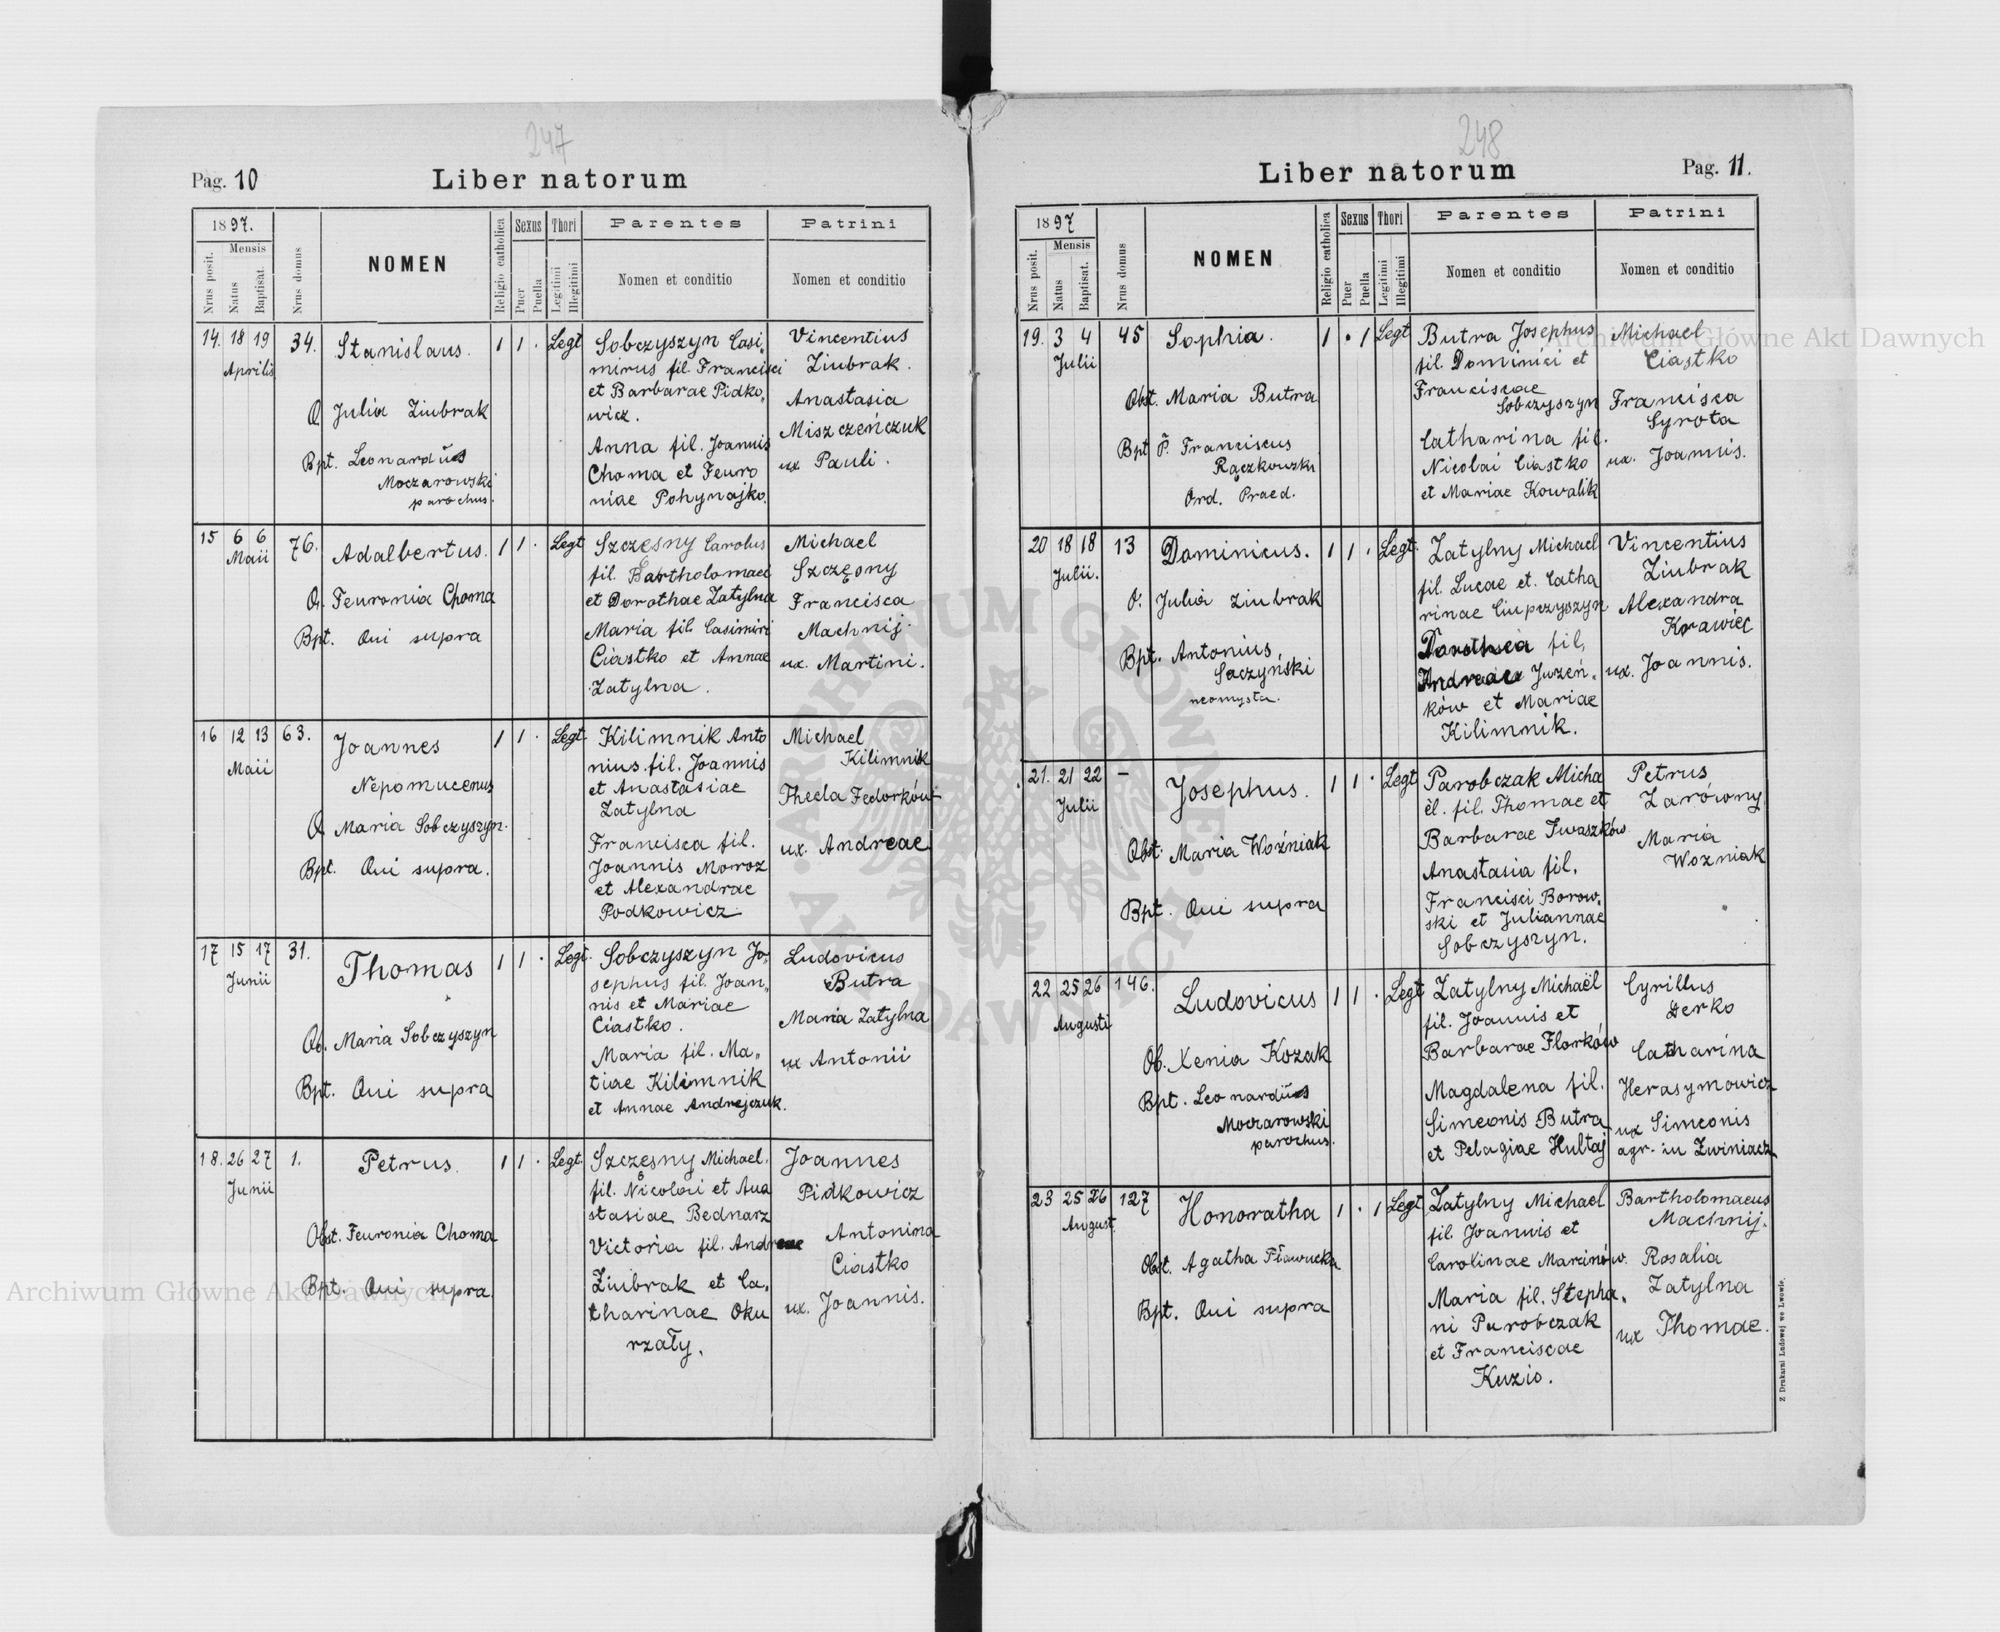 247
Pag. 10
Liber natorum
1897.
Mensis
Nrus posit.
Natus
Baptisat.
Nrus domus
NOMEN
Religio catholica
Sexus
Puer
Puella
Thori
Legitimi
Illegitimi
Parentes
Nomen et conditio
Patrini
Nomen et conditio
14. 18 19 34. Stanislaus. 1 1 . Legt
Aprilis
O. Julia Ziubrak
Bpt. Leonardus
Moczarowski
parochus.
Sobczyszyn Casi„
mirus fil. Francisci
et Barbarae Pidko„
wicz.
Anna fil. Joannis
Choma et Feuro
niae Pohynajko.
Vincentius
Ziubrak.
Anastasia
Miszczeńczuk
ux Pauli.
15 6 6 76. Adalbertus. 1 1 . Legt
Maii
O. Feuronia Choma
Bpt. Qui supra
Szczęsny Carolus
fil. Bartholomaei
et Dorothae Zatylna
Maria fil. Casimiri
Ciastko et Annae
Zatylna.
Michael
Szczęsny
Francisca
Machnij.
ux. Martini.
16 12 13 63. Joannes 1 1 . Legt.
Maii
Nepomucenus
O. Maria Sobczyszyn.
Bpt. Qui supra.
Kilimnik Anto
nius fil. Joannis
et Anastasiae
Zatylna
Francisca fil.
Joannis Moroz
et Alexandrae
Podkowicz
Michael
Kilimnik
Thecla Fedorków
ux. Andreae
17 15 17 31. Thomas 1 1 . Legt.
Junii
Ob. Maria Sobczyszyn
Bpt. Qui supra
Sobczyszyn Jo„
sephus fil. Joan„
nis et Mariae
Ciastko.
Maria fil. Ma„
tiae Kilimnik
et Annae Andrejczuk.
Ludovicus
Butra
Maria Zatylna
ux Antonii
18. 26 27 1. Petrus. 1 1 . Legt.
Junii
Obst. Feuronia Choma
Bpt. Qui supra.
Szczęsny Michael.
fil. Nicolai et Ana
stasiae Bednarz
Victoria fil. Andreae
Ziubrak et Ca„
tharinae Oku
rzały.
Joannes
Pidkowicz
Antonina
Ciastko
ux. Joannis.
248
Liber natorum
Pag. 11.
1897
Mensis
Nrus posit.
Natus
Baptisat.
Nrus domus
NOMEN
Religio catholica
Sexus
Puer
Puella
Thori
Legitimi
Illegitimi
Parentes
Nomen et conditio
Patrini
Nomen et conditio
19. 3 4 45 Sophia. 1 . 1 Legt
Julii
Obst. Maria Butra
Bpt P. Franciscus
Rączkowski
Ord. Praed.
Butra Josephus
fil. Dominici et
Franciscae
Sobczyszyn
Catharina fil.
Nicolai Ciastko
et Mariae Kowalik
Michael
Ciastko
Francisca
Syrota
ux. Joannis.
20 18 18 13 Dominicus. 1 1 . Legt.
Julii.
O. Julia Ziubrak
Bpt. Antonius
Saczyński
neomysta.
Zatylny Michael
fil. Lucae et Catha
rinae Ciupczyszyn
Dorothea fil.
Andreae Juzeń„
ków et Mariae
Kilimnik.
Vincentius
Ziubrak
Alexandra
Krawiec
ux. Joannis.
21. 21 22 – Josephus. 1 1 . Legt
Julii
Obst. Maria Woźniak
Bpt. Qui supra
Parobczak Micha
ël. fil. Thomae et
Barbarae Iwaszków
Anastasia fil.
Francisci Borow„
ski et Juliannae
Sobczyszyn.
Petrus
Zarówny
Maria
Woźniak
22 25 26 146. Ludovicus 1 1 . Legt
Augusti
Ob. Xenia Kozak
Bpt. Leonardus
Moczarowski
parochus.
Zatylny Michaël
fil. Joannis et
Barbarae Florków
Magdalena fil.
Simeonis Butra
et Pelagiae Hultaj
Cyrillus
Derko
Catharina
Herasymowicz
ux Simeonis
agr. in Zwiniacz
23 25 26 127 Honoratha 1 . 1 Legt
August.
Obst. Agatha Pławucka
Bpt. Qui supra
Zatylny Michael
fil. Joannis et
Carolinae Marinów.
Maria fil. Stepha„
ni Parobczak
et Franciscae
Kuzio.
Bartholomaeus
Machnij.
Rosalia
Zatylna
ux Thomae.
Z Drukarni Ludowej we Lwowie.
Archiwum Główne Akt Dawnych
Archiwum Główne Akt Dawnych
ARCHIWUM GŁÓWNE AKT DAWNYCH